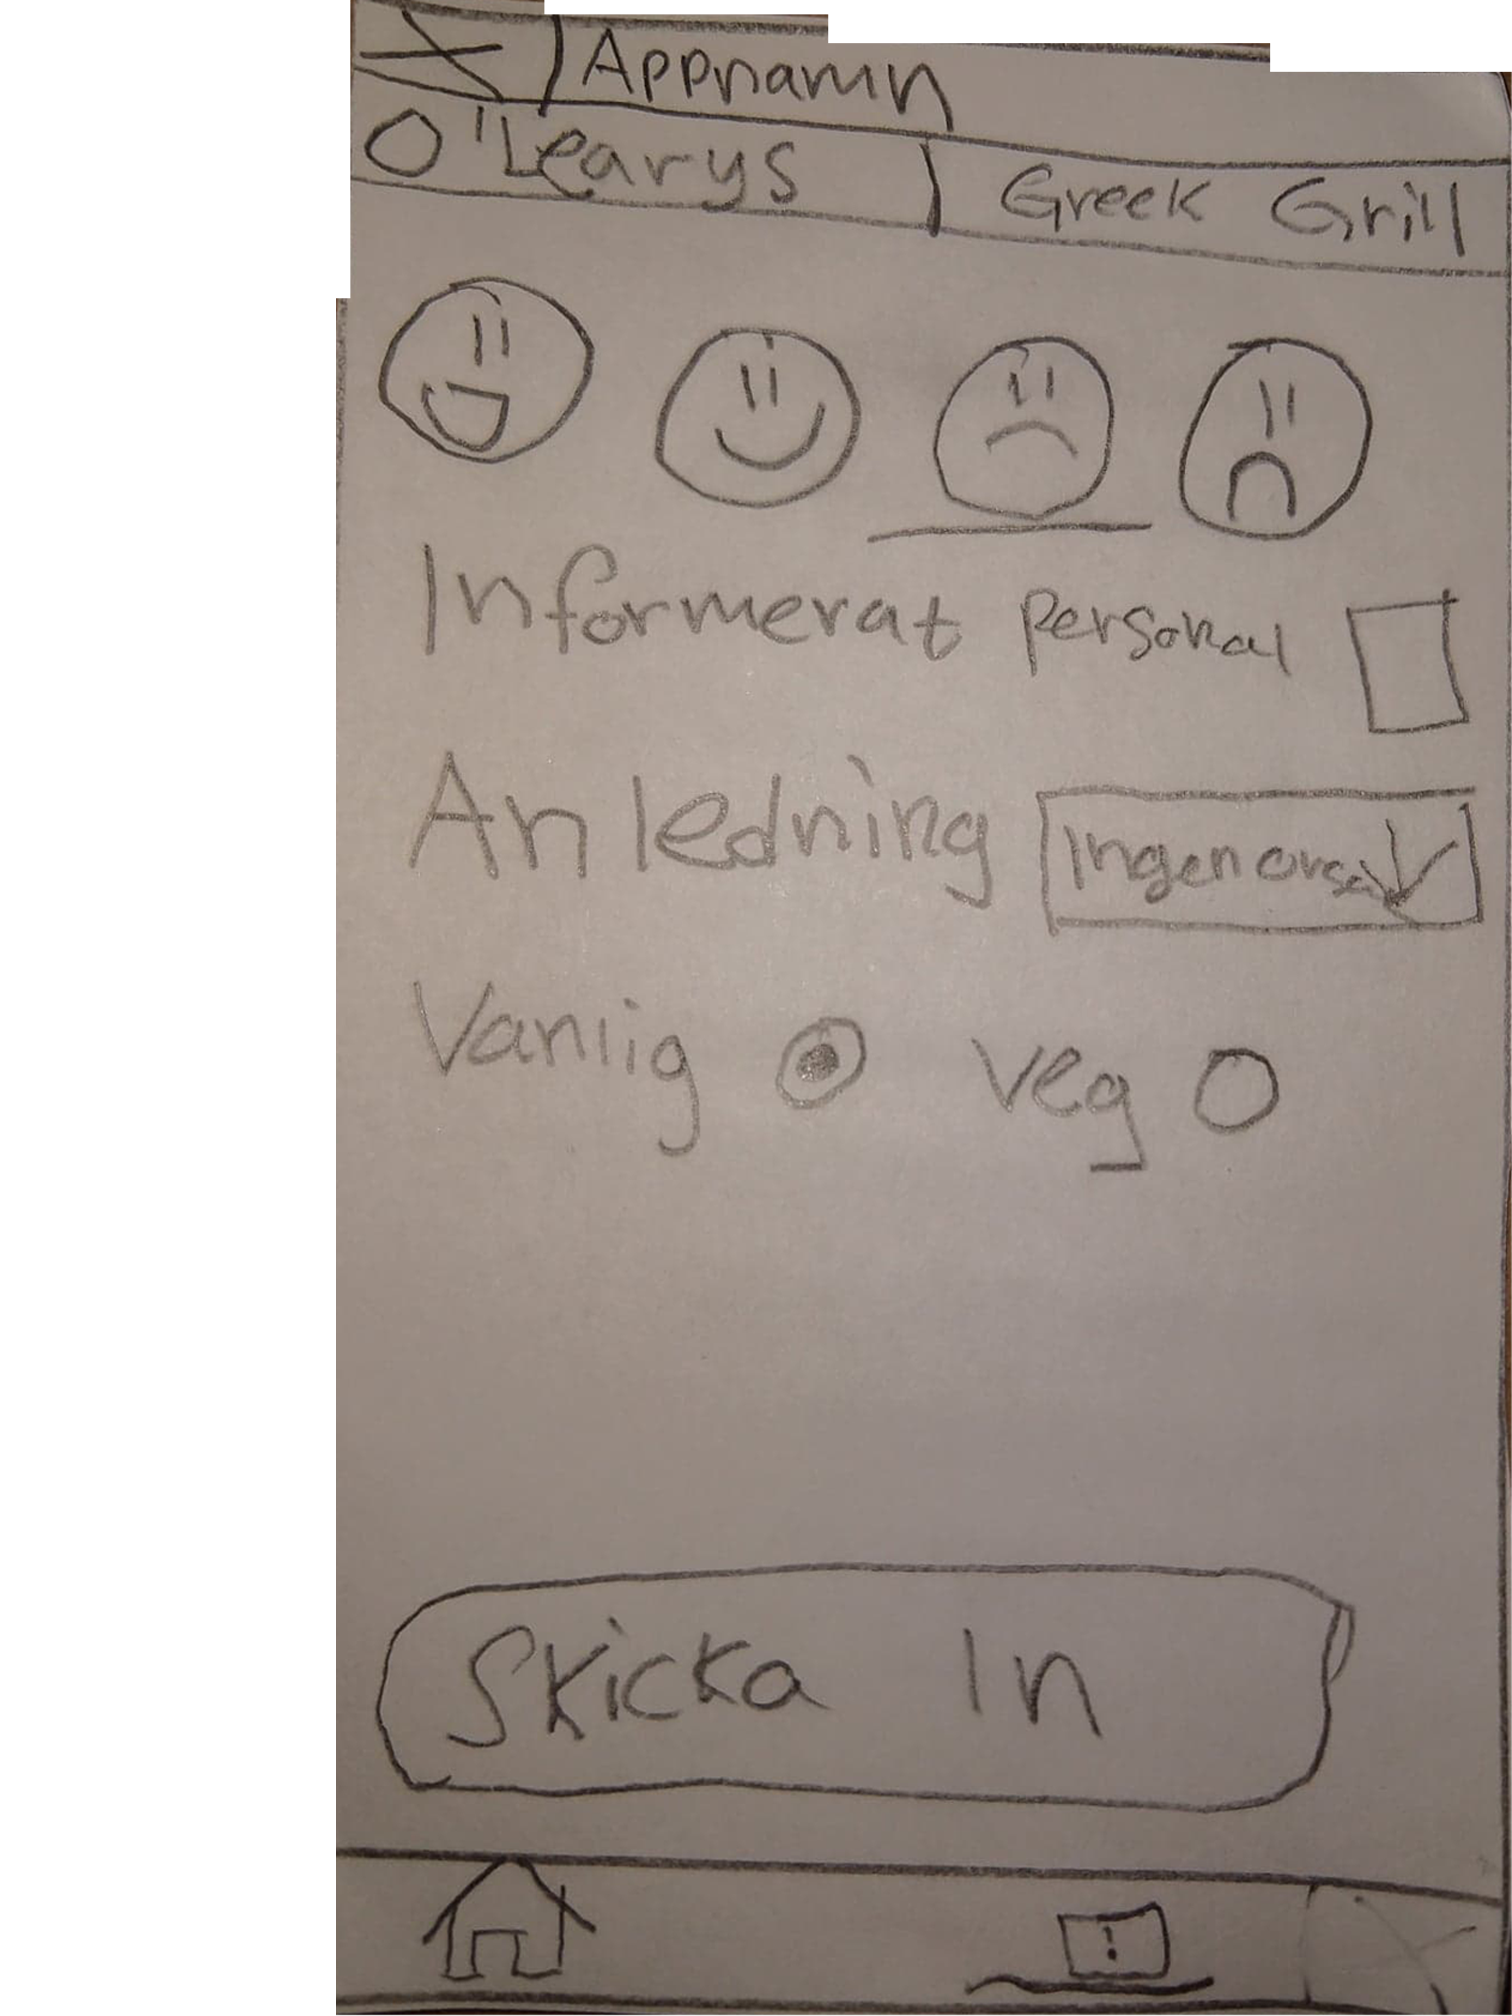 Appnamn
O'Learys Greek Grill
Informerat personal
Anledning Ingen orsa
Vanlig veg
Skicka In
!